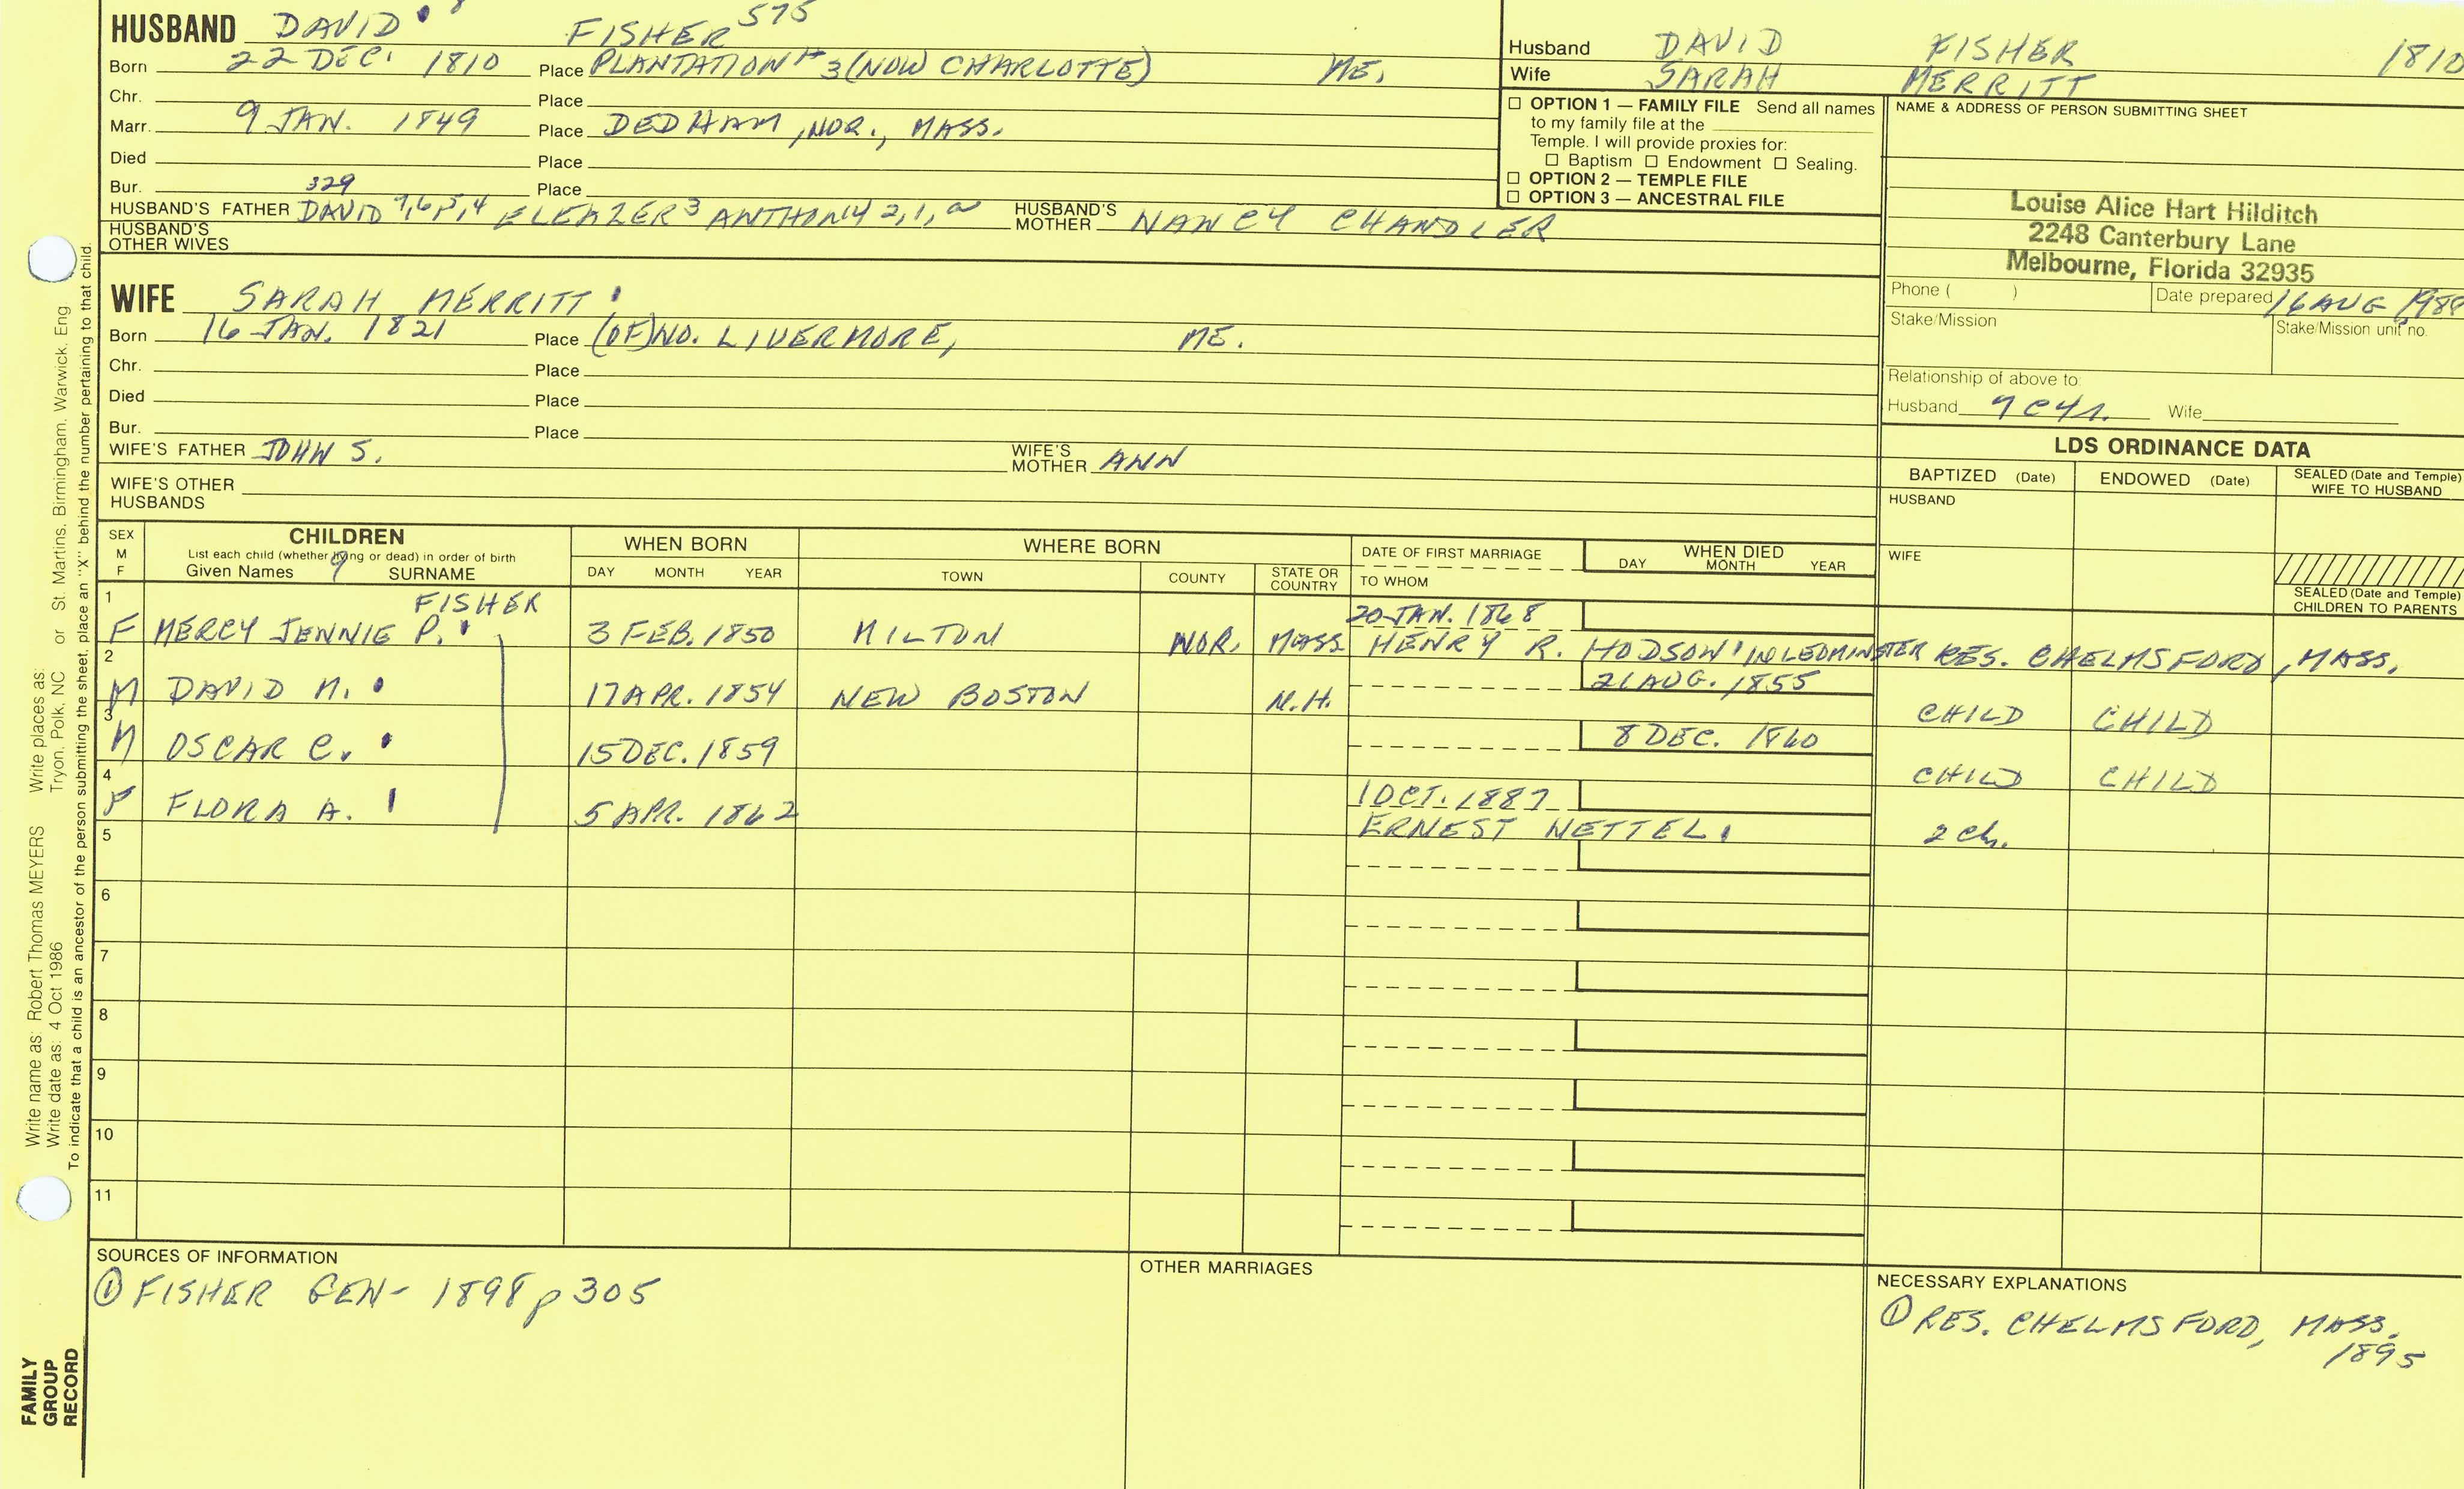 HUSBAND DAVID FISHER 575
Born 22 DEC. 1810 Place PLANTATION # 3 (NOW CHARLOTTE) ME.
Chr. Place
Marr. 9 JAN. 1849 Place DEDHAM, NOR., MASS.
Died Place
Bur. Place
329
HUSBAND'S FATHER DAVID 7,6,5,4 ELEAZER 3 ANTHONY 2,1, HUSBAND'S MOTHER NANCY CHANDLER
HUSBAND'S OTHER WIVES
Husband DAVID FISHER 1810
Wife SARAH MERRITT
☐ OPTION 1 — FAMILY FILE Send all names
to my family file at the
Temple. I will provide proxies for:
☐ Baptism ☐ Endowment ☐ Sealing.
☐ OPTION 2 — TEMPLE FILE
☐ OPTION 3 — ANCESTRAL FILE
NAME & ADDRESS OF PERSON SUBMITTING SHEET
Louise Alice Hart Hilditch
2248 Canterbury Lane
Melbourne, Florida 32935
Phone ( ) Date prepared 16 AUG
Stake/Mission Stake/Mission unit no.
Relationship of above to:
Husband Wife
WIFE SARAH MERRITT
Born 16 JAN. 1821 Place (OF) NO. LIVERMORE, ME.
Chr. Place
Died Place
Bur. Place
WIFE'S FATHER JOHN S. WIFE'S MOTHER ANN
WIFE'S OTHER
HUSBANDS
LDS ORDINANCE DATA
BAPTIZED (Date) ENDOWED (Date) SEALED (Date and Temple) WIFE TO HUSBAND
HUSBAND
WIFE
SEALED (Date and Temple)
CHILDREN TO PARENTS
SEX M F
CHILDREN
List each child (whether living or dead) in order of birth
Given Names SURNAME
WHEN BORN
DAY MONTH YEAR
WHERE BORN
TOWN COUNTY STATE OR COUNTRY
DATE OF FIRST MARRIAGE
TO WHOM
WHEN DIED
DAY MONTH YEAR
1 FISHER 20 JAN. 1868
F MERCY JENNIE P. 3 FEB. 1850 MILTON NOR. MASS HENRY R. HODSON IN LEOMINSTER RES. CHELMSFORD, MASS.
2 21 AUG. 1855
M DAVID M. 17 APR. 1854 NEW BOSTON N.H. CHILD CHILD
3 8 DEC. 1860
M OSCAR C. 15 DEC. 1859 CHILD CHILD
4 1 OCT. 1887
F FLORA A. 5 APR. 1862 ERNEST NETTEL. 2 Ch.
5
6
7
8
9
10
11
SOURCES OF INFORMATION
① FISHER GEN- 1898 p 305
OTHER MARRIAGES
NECESSARY EXPLANATIONS
① RES. CHELMSFORD, MASS.
1895
Write name as: Robert Thomas MEYERS Write places as:
Write date as: 4 Oct 1986 Tryon, Polk, NC or St. Martins, Birmingham, Warwick, Eng
To indicate that a child is an ancestor of the person submitting the sheet, place an "X" behind the number pertaining to that child.
FAMILY
GROUP
RECORD